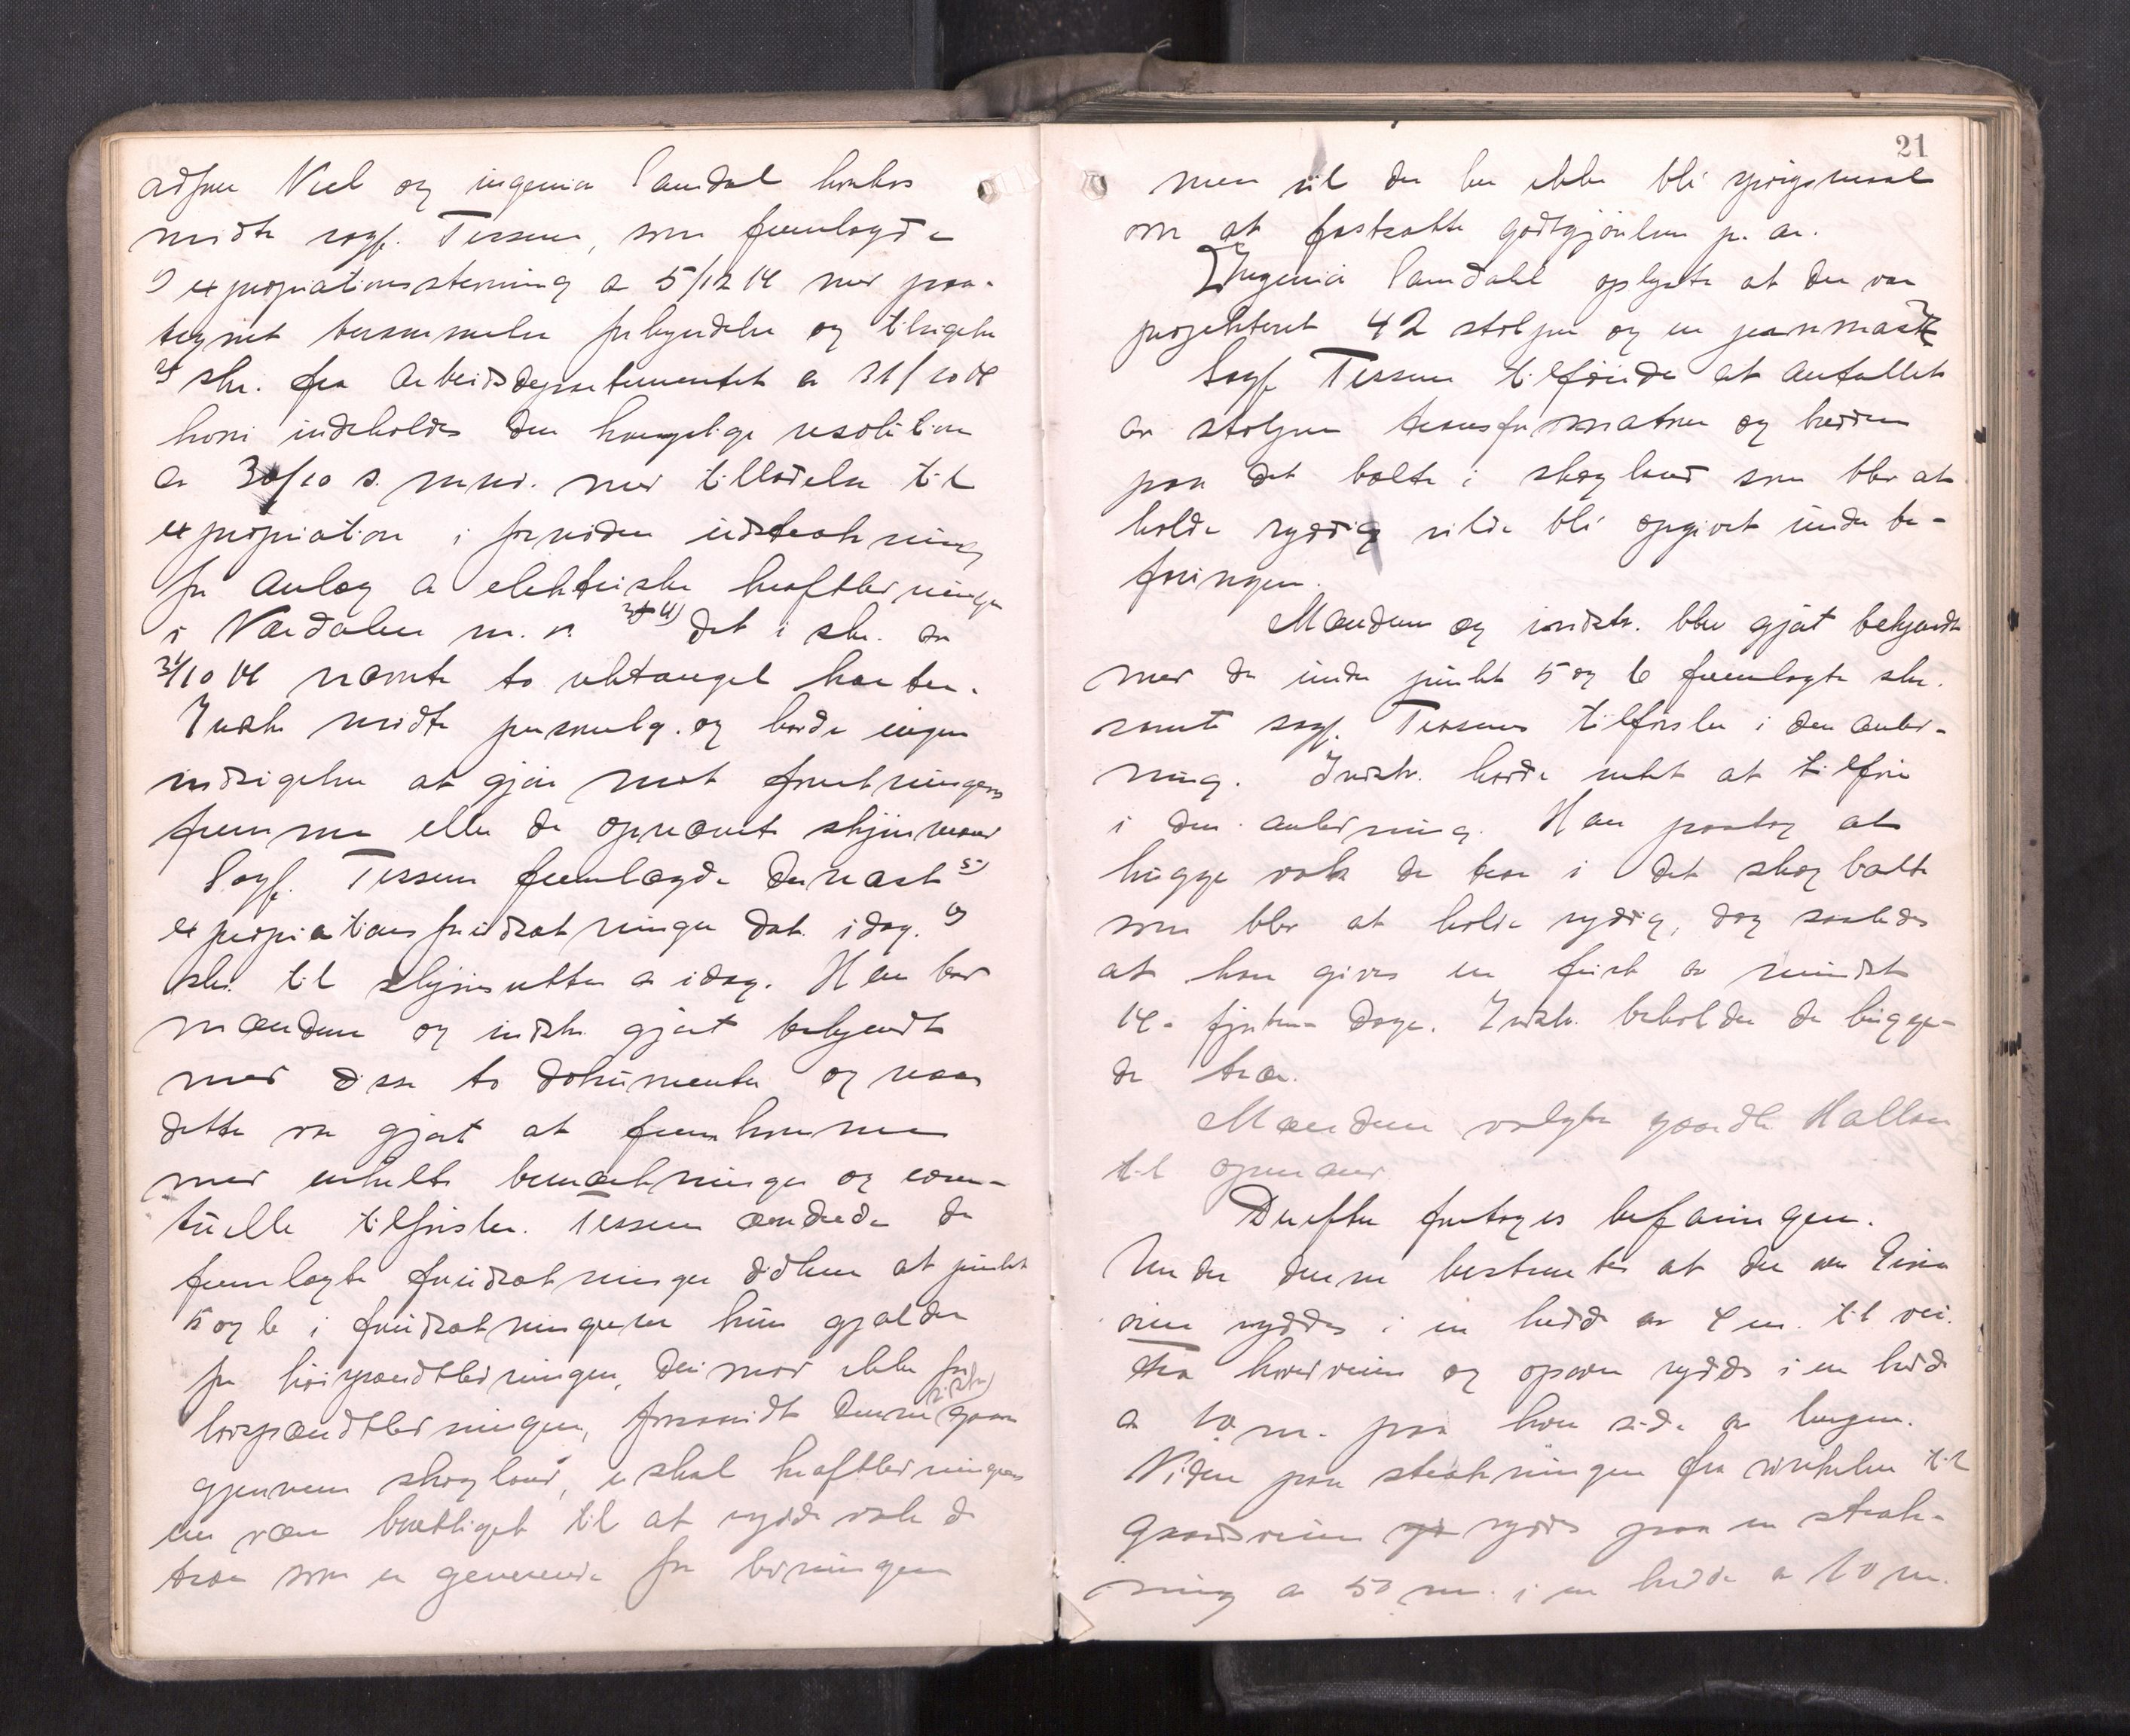 adføre Veel og ingeniør Sandal hvorhos
mødte sagf. Tessem, som fremlagde
1) expropriationsstevning a 5/12 14 med paa-
tegnet berammelse forkyndelse og tilsigelse
2) skr. fra Arbeidsdepartementet a 31/10 14
hvori indeholdes den kongelige resolution
a 30/10 s. mnd. med tilladelse til
expropriation i fornøden utstrækning
for anlæg a elektriske kraftledninger
i Værdalen m. v. 3 & 4) det i skr. av
31/10 14 nævnte to rektangel karter.
Indstv. mødte personlig. og havde ingen
indsigelse at gjøre mot forretningens
fremme eller de opnævnte skjønsmænd
Sagf. Tessem fremlagde dernæst 5)
expropriationsforutsætninger dat. idag. 6)
skr. til skjønsretten a idag. Han bad
mændene og indstv. gjort bekjendt
med disse to dokumenter og naar
dette var gjort at fremkomme
med enkelte bemærkninger og even-
tuelle tilførsler. Tessem ændrede de
fremlagte forutsætninger derhen at punkt
5 og 6 i forutsætningerne kun gjælder
for høispændtledningen, derimod ikke for
lavspændtledningen, forsaavidt denne gaar
gjennem skogland, skal kraftledningens
eier være berettiget til at rydde væk de
trær som er generende for ledningen
21
men vil der her ikke bli spørgsmaal
om at fastsætte godtgjørelsen pr. ar.
Ingeniør Sandahl oplyste at der var
projekteret 42 stolper og en jernmast
Sagf. Tessem tilføide at antallet
av stolper transformatorer og bredden
paa det bælte i skogland som blir at
holde ryddig vilde bli opgivet under be-
faringen.
Mændene og indstv. blev gjort bekjendt
med de under punkt 5 og 6 fremlagte skr.
samt sagf. Tessems tilførsler i den anled-
ning. Indstv. havde intet at tilføie
i den anledning. Han paatog at
hugge væk de trær i det skogbælte
som blir at holde ryddig, dog saaledes
at han gives en frist av mindst
14- fjorten- dage. Indstv. beholder de hugge-
de trær.
Mændene valgte gaardbr. Hallan
til opmand
Derefter foretoges befaringen.
Under denne bestemtes at der
ryddes i en bredde av 4 m. til vei.
Fra hovedveien og opover ryddes i en bredde
a 10 m. paa hver side av linjen.
Videre paa strækningen fra vinkelen til
Gaardsveien ryddes paa en stræk-
ning a 50 m. i en bredde a 10 m.